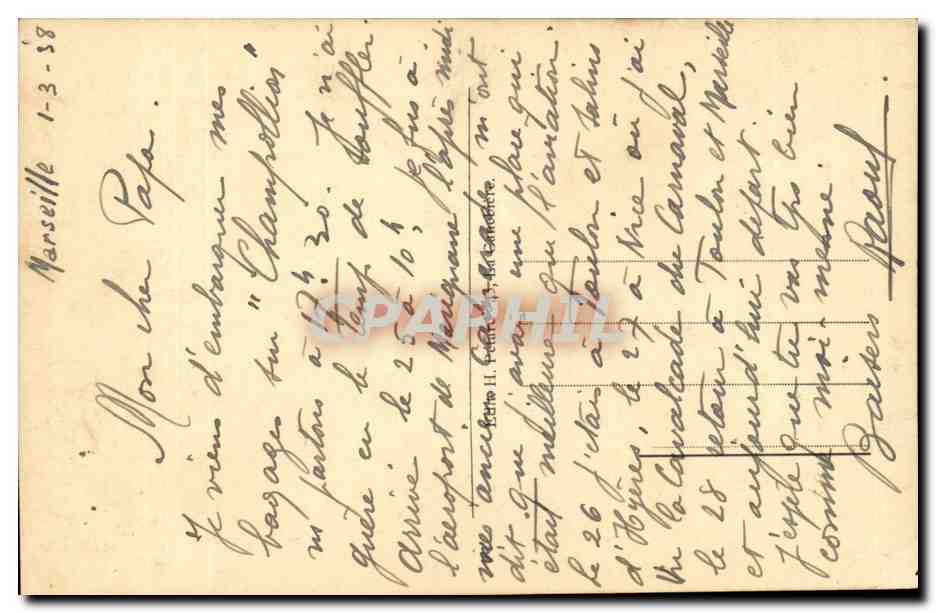 Marseille 1-3-38
Mon cher Papa.
Je viens d'embarquer mes
bagages sur "Champollion"
ns partons à 12h 30. Je n'ai
guère eu le temps de souffler
arrivé le 25 à 10h, je fus à
l'aéroport de Marignane l'après midi
mes anciens camarades m'ont
dit que j'avais une place qui
était meilleure que l'aviation.
Le 26 j'étais à Toulon et Salins
d'Hyères, le 27 à Nice où j'ai
vu la Cavalcade du Carnaval,
le 28 retour à Toulon et Marseille
et aujourd'hui départ.
J'espère que tu vas très bien
comme moi-même.
Baisers Raoul
Edit. H. 3, La Canebière.
CPAPHIL